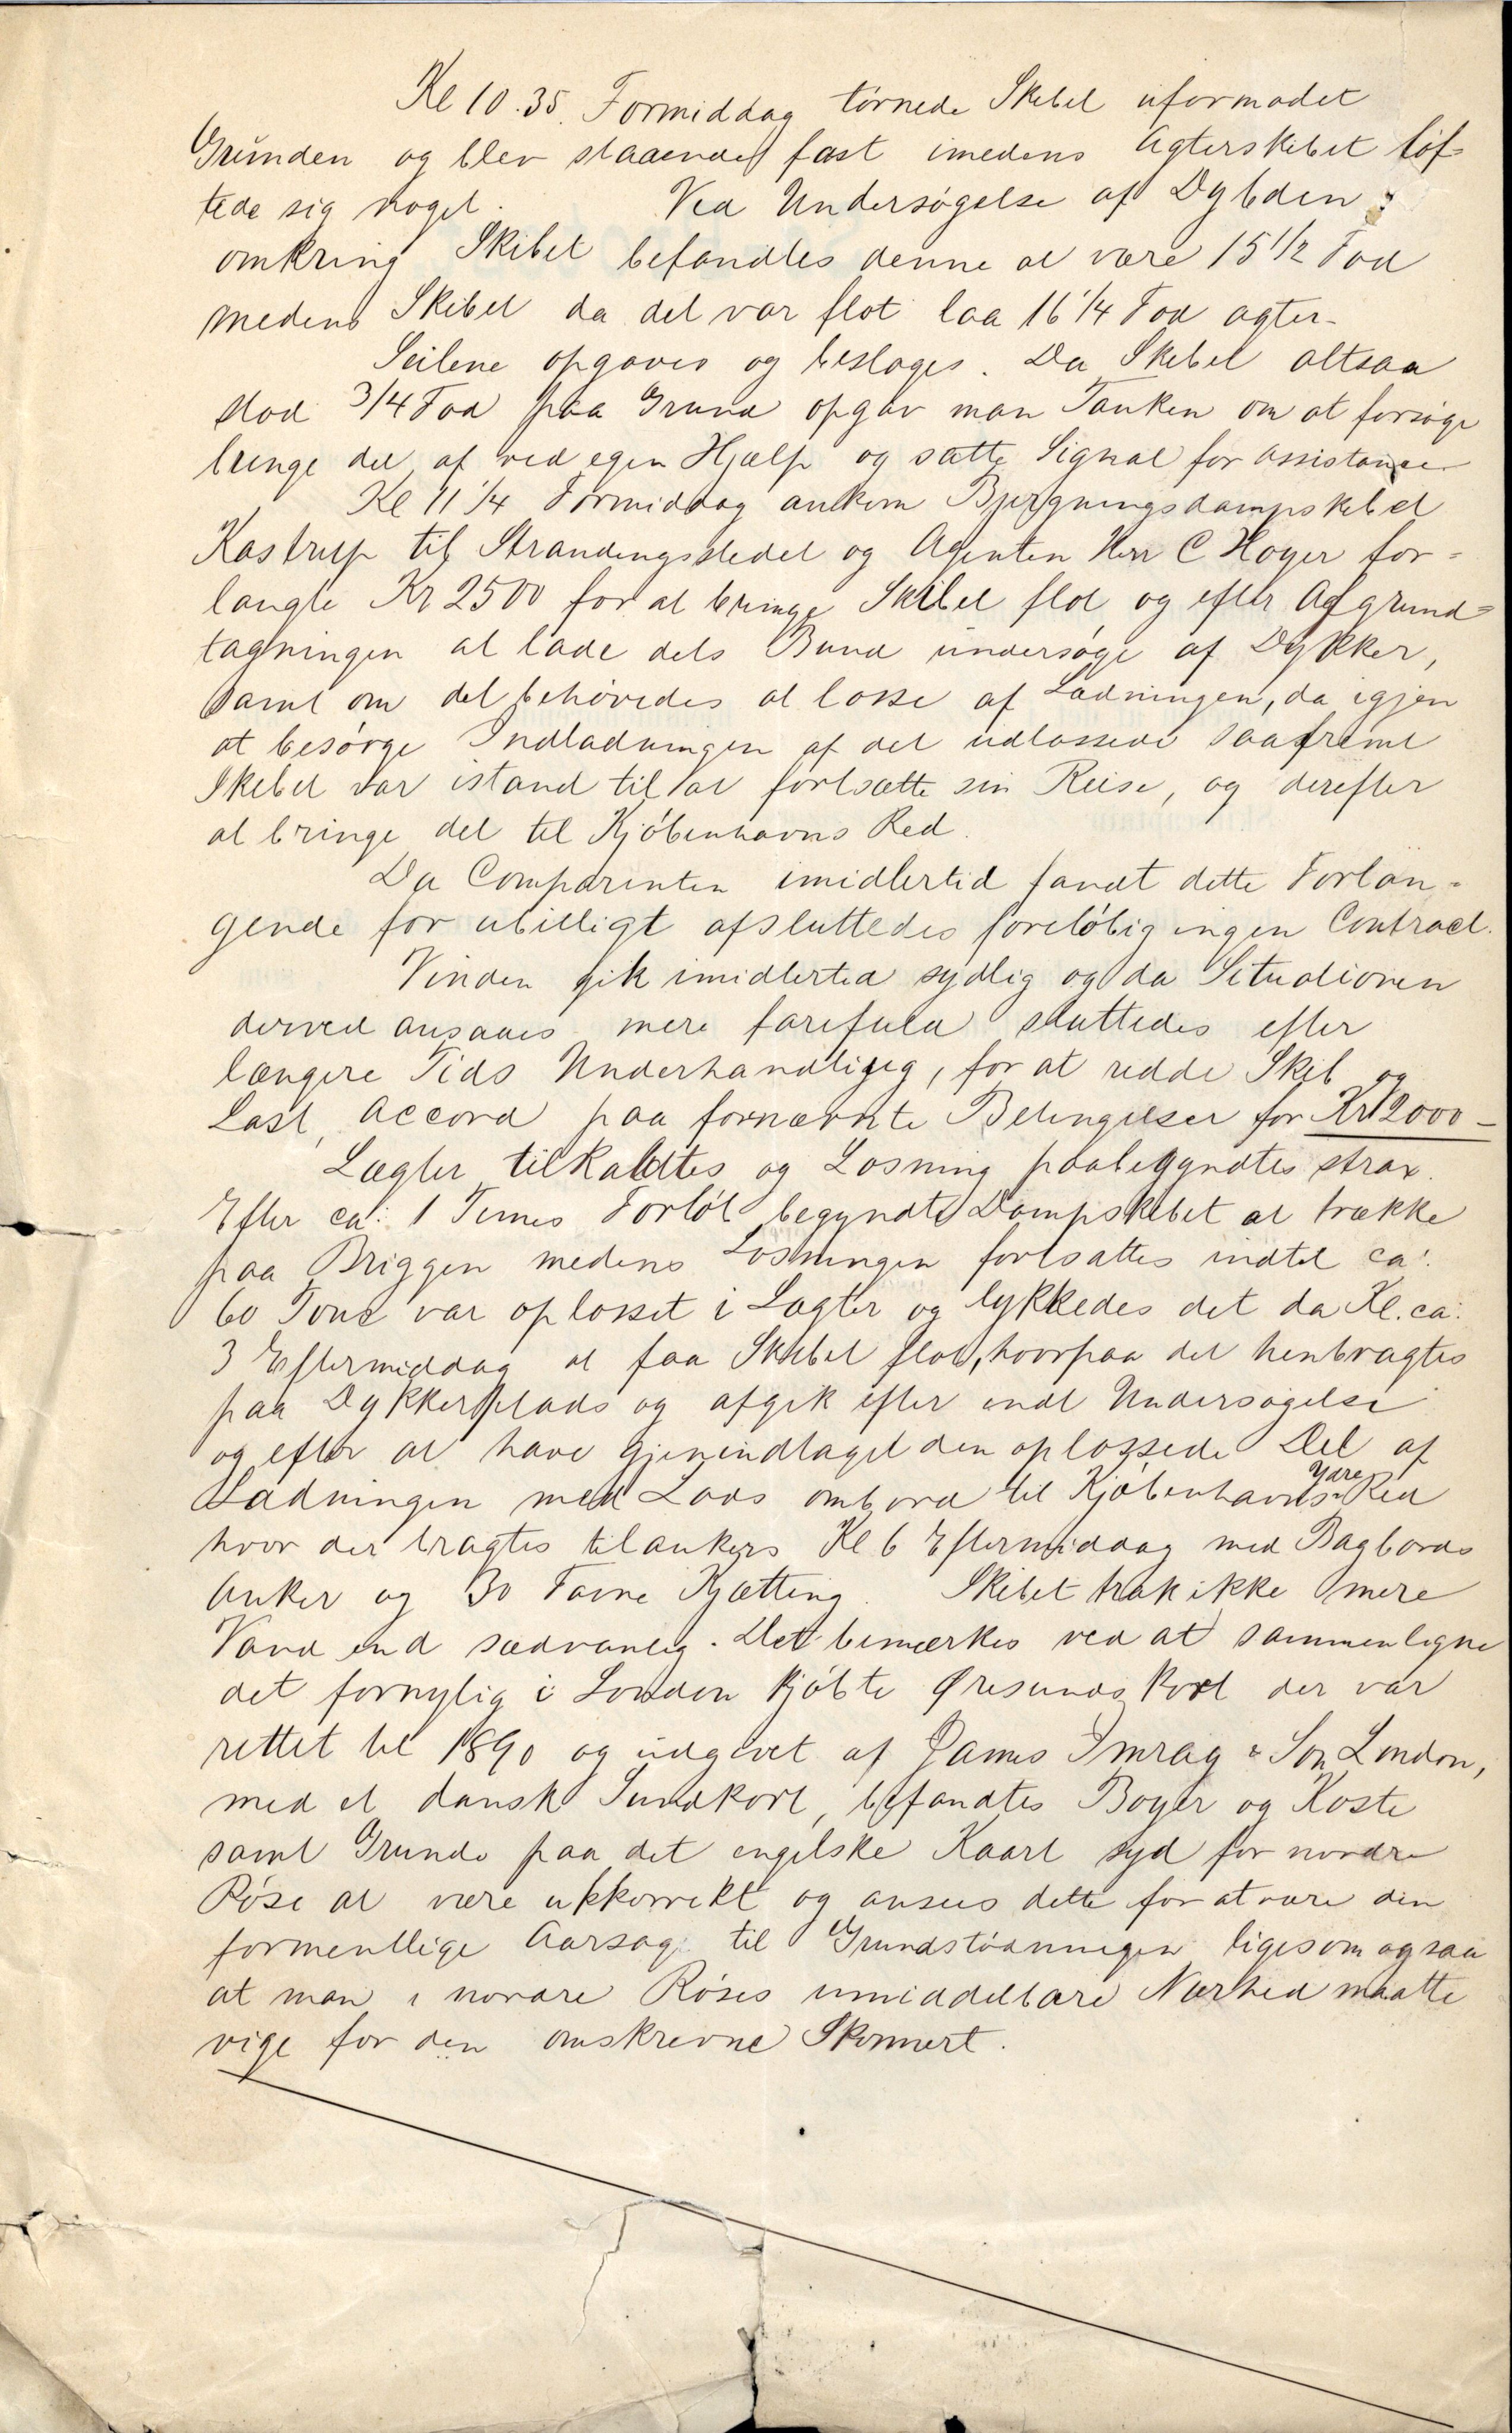 Kl 10.35. Formiddag tørnede Skibet uformodet
Grunden og blev staaende fast imedens Agterskibet løf-
tede sig noget. Ved Undersøgelse af Dybden
omkring Skibet befandtes denne at være 15 1/2 Fod
medens Skibet da det var flot laa 16 1/4 Fod agter-
Seilene opgaves og besloges. Da Skibet altsaa
stod 3/4 Fod paa Grund opgav man Tanken om at forsøge
bringe det af ved egen Hjælp og satte Signal for Assistance
Kl 11 1/4 Formiddag ankom Bjergningsdampskibet
Kastrup til Strandingsstedet og Agenten Herr C Hoyer for=
langte Kr 2500 for at bringe Skibet flot og efter Afgrund=
tagningen at lade dets Bund undersøge af Dykker,
samt om det behøvedes at losse af Ladningen, da igjen
at besørge Indladningen af det udlossede saafremt
Skibet var istand til at fortsætte sin Reise, og derefter
at bringe det til Kjøbenhavns Red.
Da Comparenten imidlertid fandt dette Forlan=
gende for ubilligt afsluttedes foreløbig ingen Contract.
Vinden gik imidlertid sydlig og da Situationen
derved ansaaes mere farefuld sluttedes efter
længere Tids Underhandligig, for at redde Skib og
Last, Accord paa fornævnte Betingelser for Kr 2000-
Lægter tilkaldtes og Losning paabegyndtes strax.
Efter ca: 1 Times Forløb begyndte Dampskibet at trække
paa Briggen medens Losningen fortsattes indtil ca:
60 Tons var oplosset i Lægter og lykkedes det da Kl. ca:
3 Eftermiddag at faa Skibet flot, hvorpaa det henbragtes
paa Dykkerplads og afgik efter endt Undersøgelse
og efter at have gjenindtaget den oplossede Del af
Ladningen med Lods ombord til Kjøbenhavns Ydre Red
hvor der bragtes tilankers Kl 6 Eftermiddag med Bagbords
Anker og 30 Favne Kjætting. Skibet trak ikke mere
Vand end sædvanlig. Det bemærkes ved at sammenligne
det fornylig i London kjøbte Øresunds Kort der var
rettet til 1890 og udgivet af James Imray & Son London,
med et dansk Sundkort, befandtes Bøyer og Koste
samt Grunde paa det engelske Kaart syd for nordre
Røse at være ukkorrekt og ansees dette for at være den
formentlige Aarsag til Grundstødningen ligesom ogsaa
at man i nordre Røses umiddelbare Nærhed maatte
vige for den omskrevne Skonnert.